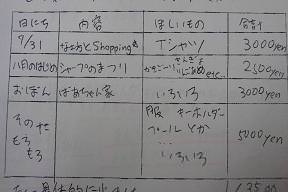 日にち 内容 ほしいもの 合計
7/31 なおとShopping Tシャツ 3000yen
八月のはじめ シャープのまつり かきごーり りんごあめ etc... 2500yen
おぼん ばあちゃん家 いろいろ 3000yen
その他 もろもろ 服 キーホルダー プールとか … いろいろ 5000yen